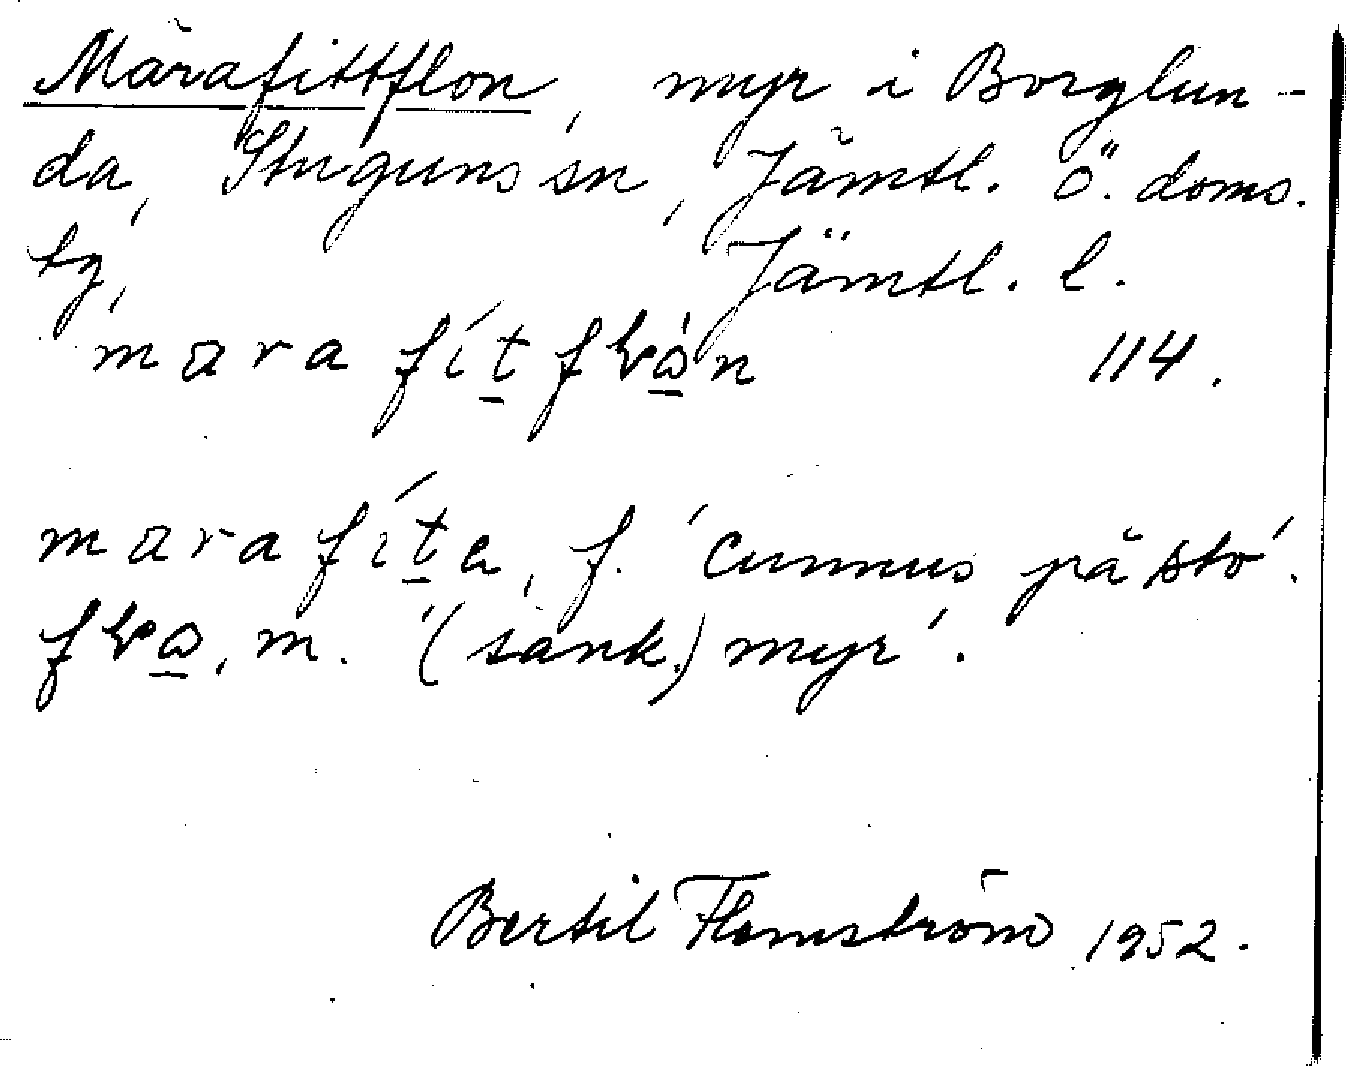 Märafittflon, myr i Borglun-
da, Stuguns sn, Jämtl. ö. doms.
tg,
Jämtl. l.
mara fítflɷ́n 114.
mara fíta, f. 'cunnus på sto'.
flɷ, m. '(sank) myr'.
Bertil Flemström 1952.